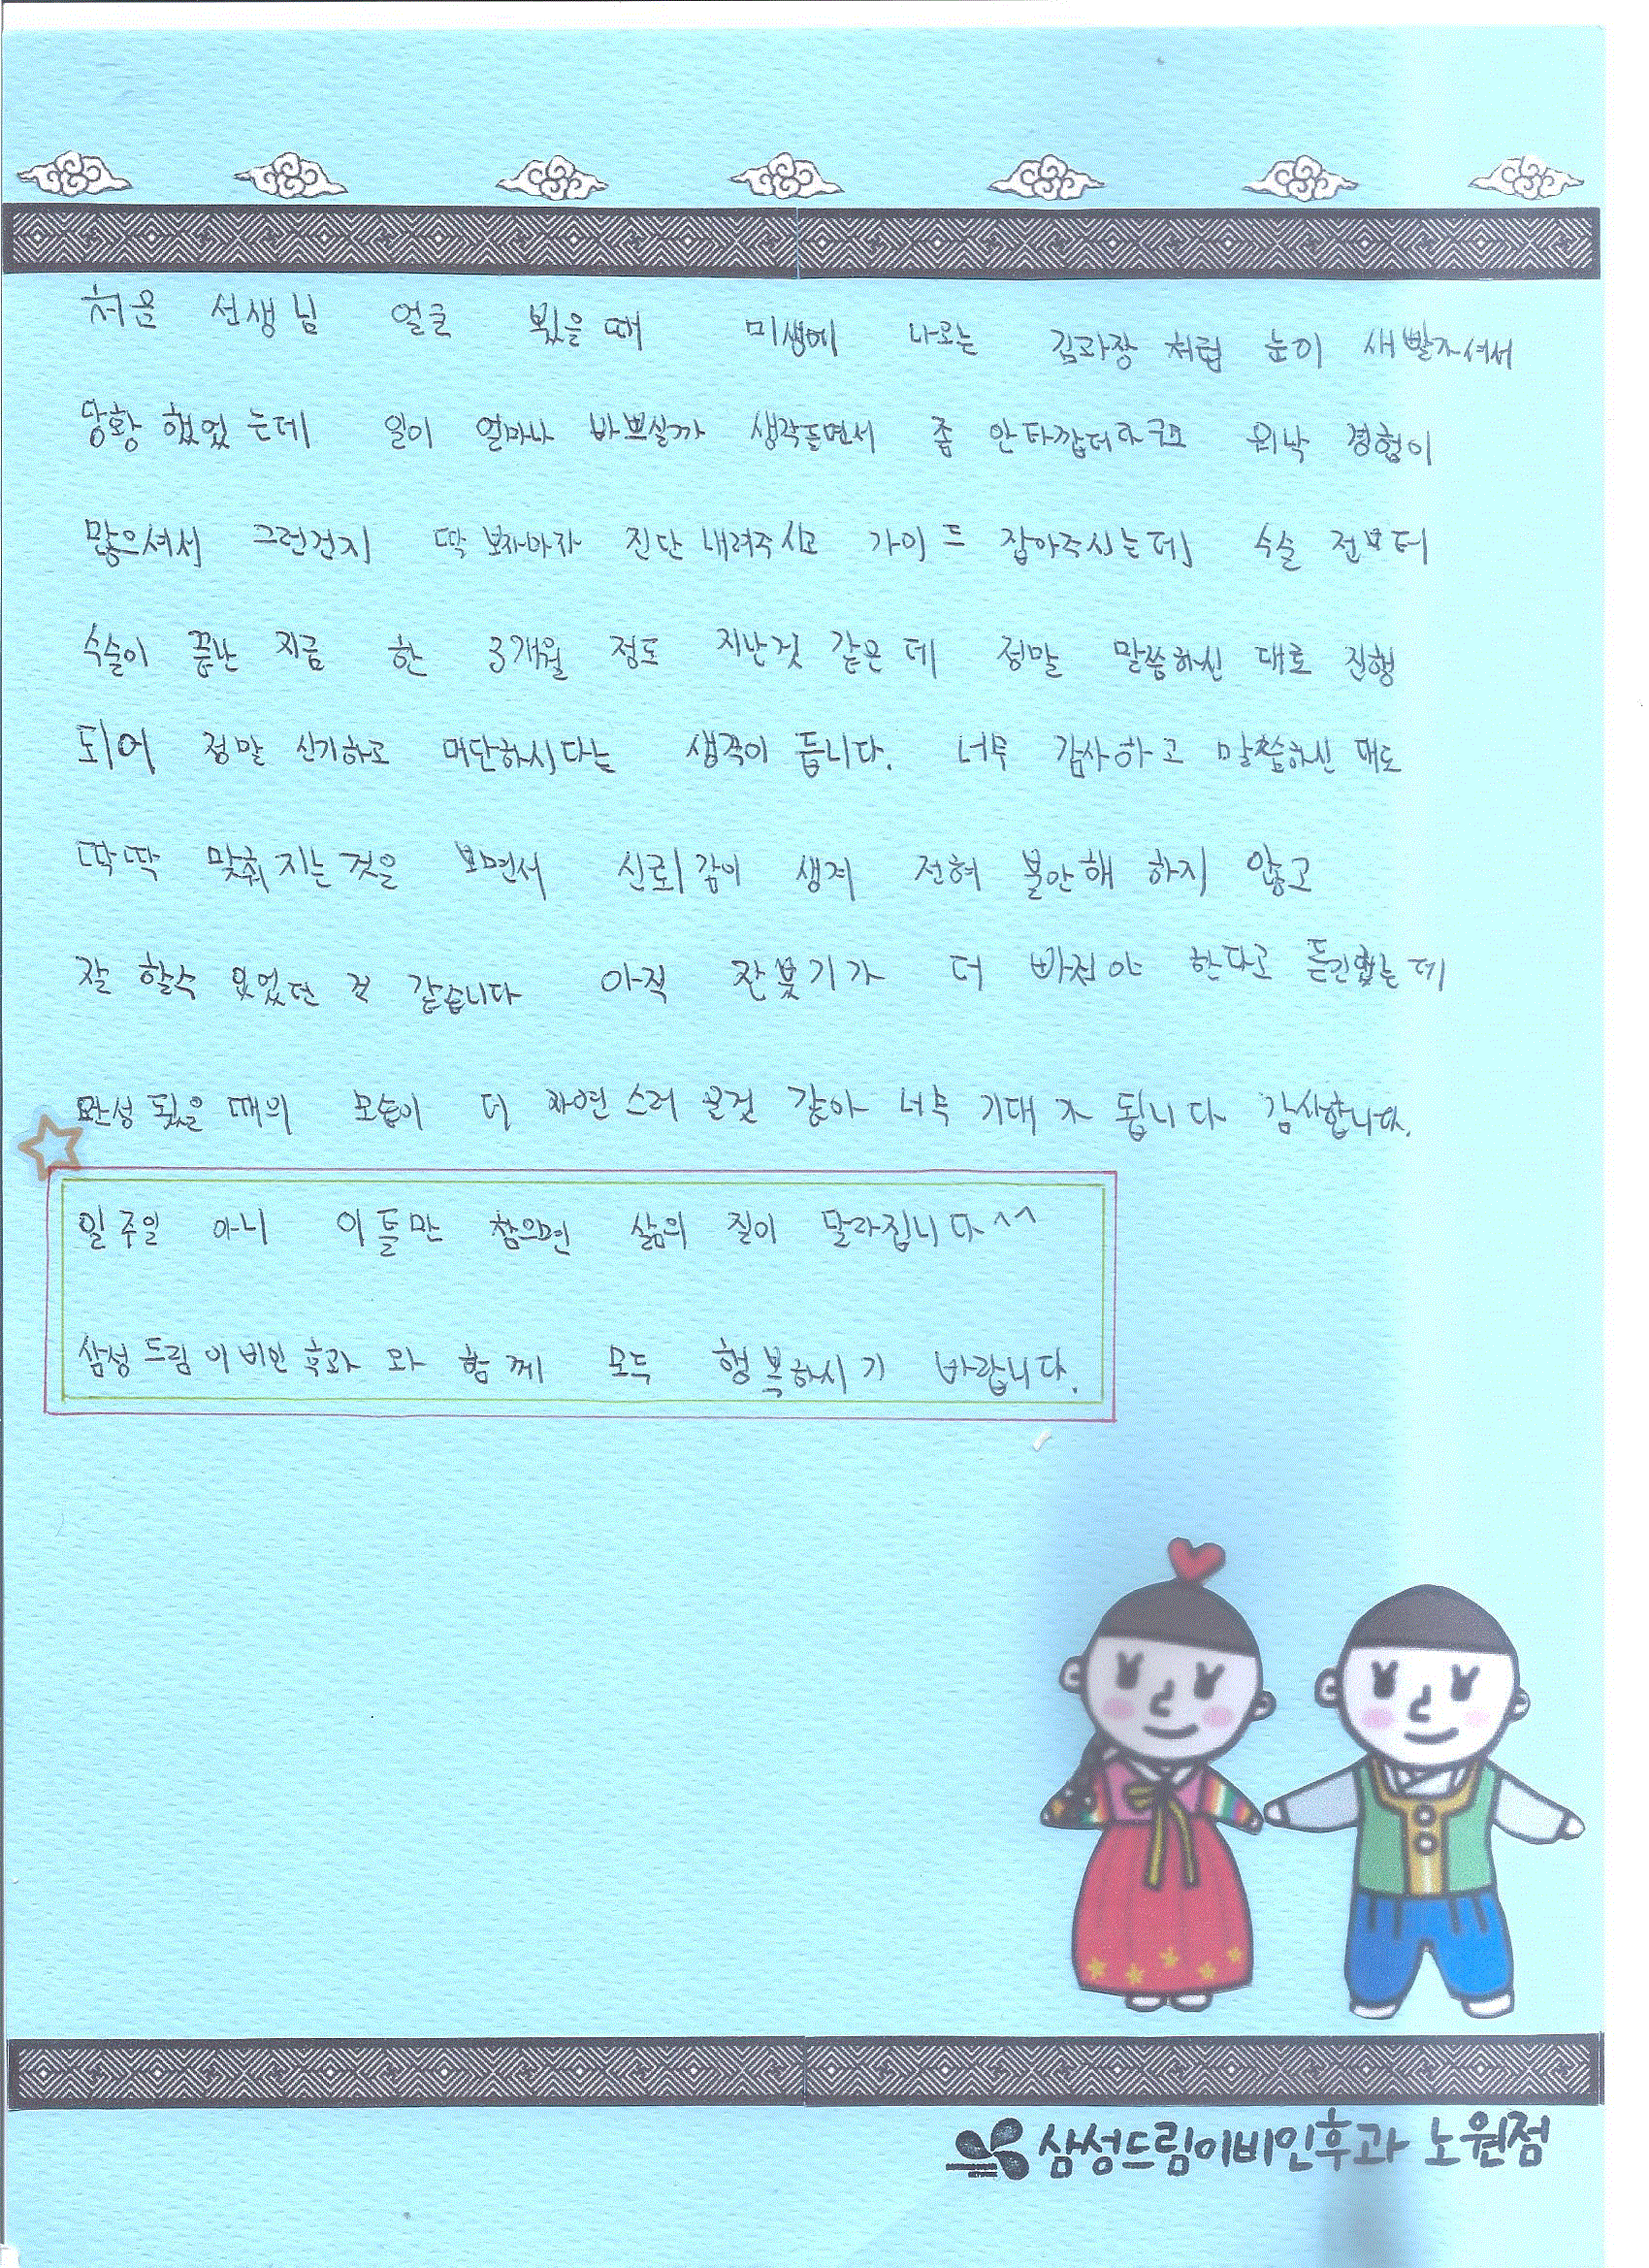 처음 선생님 얼굴 뵜을때 미생에 나오는 김과장 처럼 눈이 새빨가셔서
당황 했었는데 일이 얼마나 바쁘실까 생각들면서 좀 안타깝더라구요 워낙 경험이
많으셔서 그런건지 딱 보자마자 진단내려주시고 가이드 잡아주시는데 수술 전부터
수술이 끝난 지금 한 3개월 정도 지난것 같은데 정말 말씀하신 대로 진행
되어 정말 신기하고 대단하시다는 생각이 듭니다. 너무 감사하고 말씀하신 대로
딱딱 맞춰지는것을 보면서 신뢰감이 생겨 전혀 불안해 하지 않고
잘 할수 있었던 것 같습니다 아직 잔붓기가 더 빠져야 한다고 듣긴했는데
완성 됬을때의 모습이 더 자연스러울것 같아 너무 기대가 됩니다 감사합니다.
일주일 아니 이틀만 참으면 삶의 질이 달라집니다^^
삼성드림이비인후과와 함께 모두 행복하시기 바랍니다.
삼성드림이비인후과 노원점